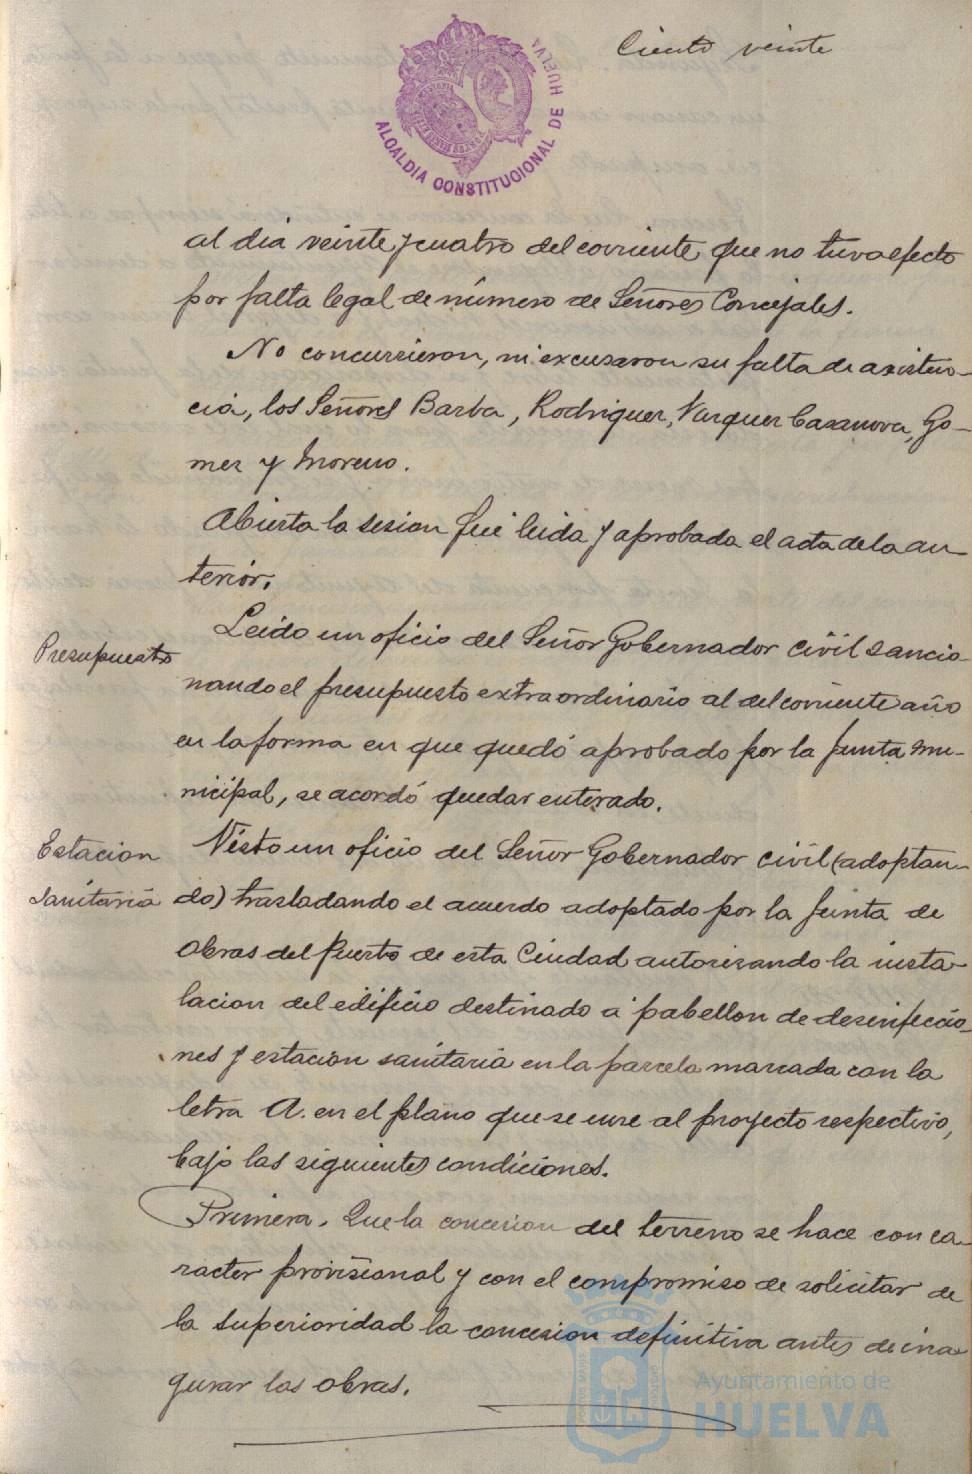 Ciento veinte
ALCALDIA CONSTITUCIONAL DE HUELVA
al dia veinte y cuatro del corriente que no tuvo efecto
por falta legal de número de Señores Concejales.
No concurrieron, ni excusaron su falta de asisten-
cia, los Señores Barba, Rodriguez, Vazquez Casanova, Go-
mez y Moreno.
Abierta la sesion fué leida y aprobada el acta de la an-
terior.
Presupuesto
Leido un oficio del Señor Gobernador civil sancio-
nando el presupuesto extraordinario al del corriente año
en la forma en que quedó aprobado por la Junta mu-
nicipal, se acordó quedar enterado.
Estacion
Sanitaria
Visto un oficio del Señor Gobernador civil (adoptan-
do) trasladando el acuerdo adoptado por la Junta de
Obras del Puerto de esta Ciudad autorizando la insta-
lacion del edificio destinado á pabellon de desinfeccio-
nes y estacion sanitaria en la parcela marcada con la
letra A. en el plano que se une al proyecto respectivo,
bajo las siguientes condiciones.
Primera. Que la concesion del terreno se hace con ca-
racter provisional y con el compromiso de solicitar de
la superioridad la concesion definitiva antes de ina-
gurar las obras.
Ayuntamiento de
HUELVA